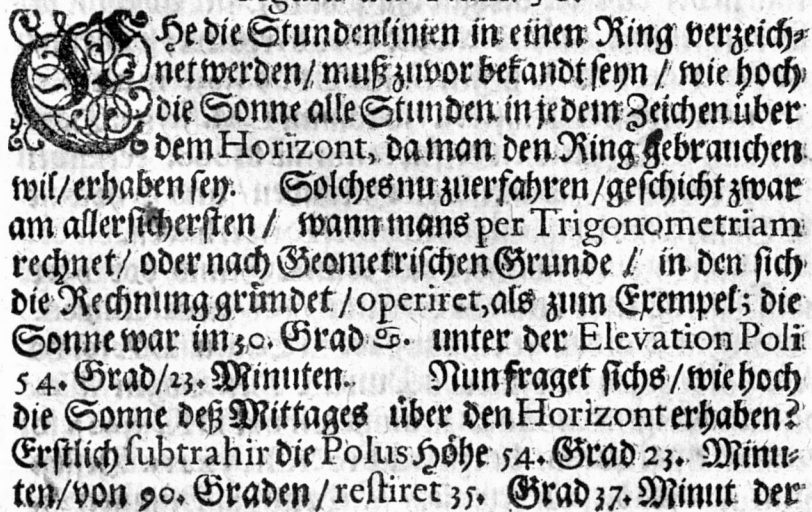 EHe die Stundenlinien in einen Ring verzeich⸗
net werden / muß zuvor bekandt seyn / wie hoch
die Sonne alle Stunden in jedem Zeichen über
dem Horizont, da man den Ring gebrauchen
wil / erhaben sey. Solches nu zuerfahren / geschicht zwar
am allersichersten / wann mans per Trigonometriam
rechnet / oder nach Geometrischen Grunde / in den sich
die Rechnung gründet / operiret, als zum Exempel; die
Sonne war im 30. Grad ♋. unter der Elevation Poli
54. Grad / 23. Minuten. Nun fraget sichs / wie hoch
die Sonne deß Mittages über den Horizont erhaben?
Erstlich subtrahir die Polus Höhe 54. Grad 23. Minu⸗
ten / von 90. Graden / restiret 35. Grad 37. Minut der